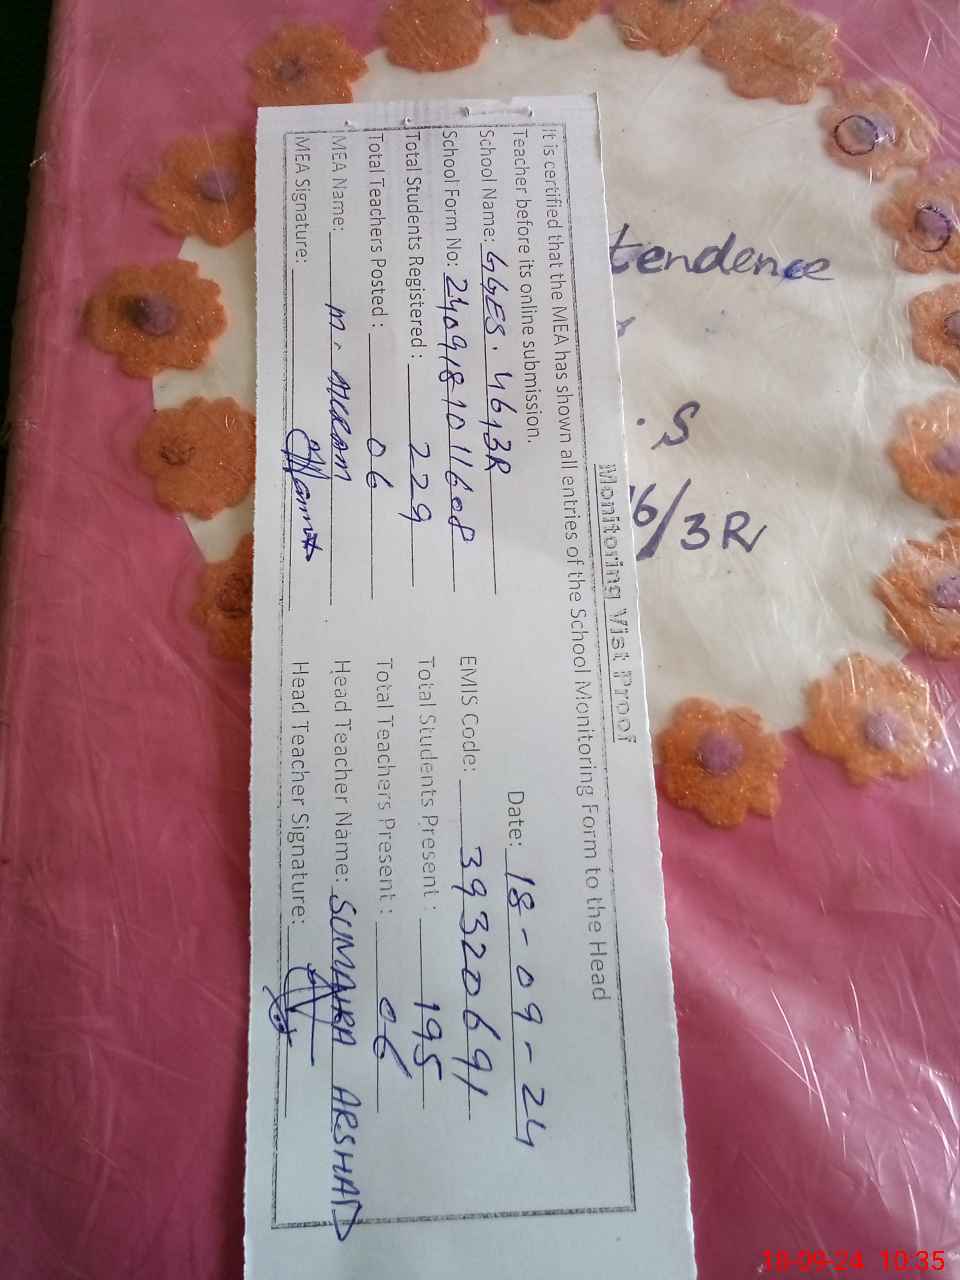 Monitoring Vist Proof
It is certified that the MEA has shown all entries of the School Monitoring Form to the Head
Teacher before its online submission.
Date: 18-09-24
School Name: GGES. 4613R
School Form No: 24091810 11608
EMIS Code: 39320691
Total Students Registered : 229
Total Students Present : 195
Total Teachers Posted : 06
Total Teachers Present : 06
MEA Name: M. AKRAM
Head Teacher Name: SUMAIRA ARSHAD
MEA Signature:
Head Teacher Signature:
tendence
. S
16/3R
18-09-24 10:35